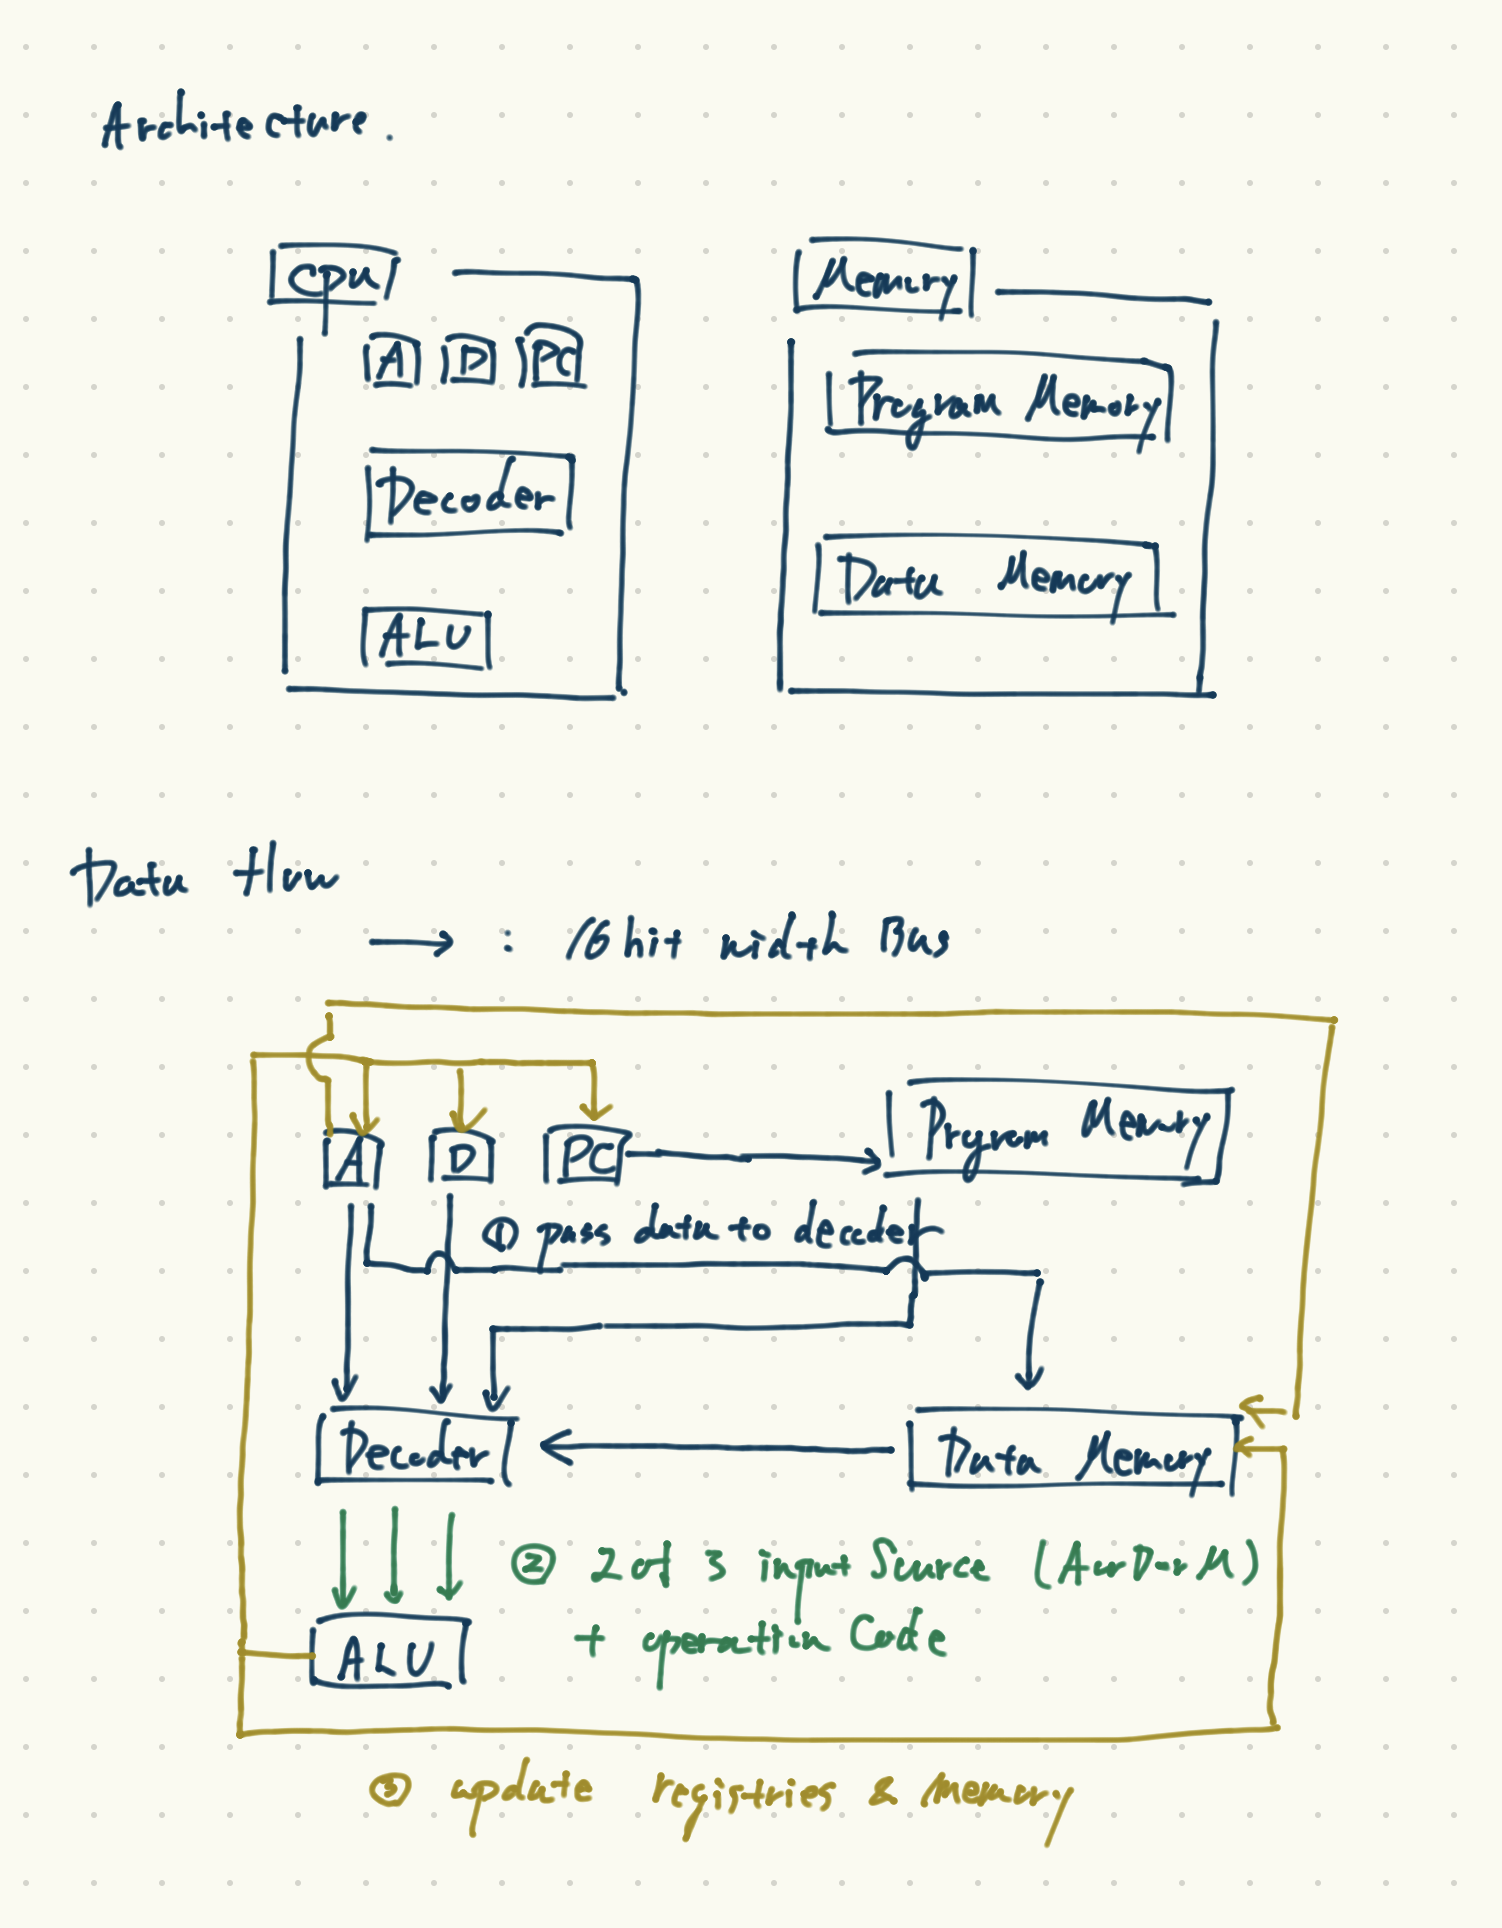 Architecture.
CPU
Memory
A D PC
Program Memory
Decoder
Data Memory
ALU
Data Flow
→ : 16 bit width Bus
A D PC
Program Memory
① pass data to decoder
Decoder
Data Memory
② 2 of 3 input Source (A or D or M)
+ operation Code
ALU
③ update registries & Memory